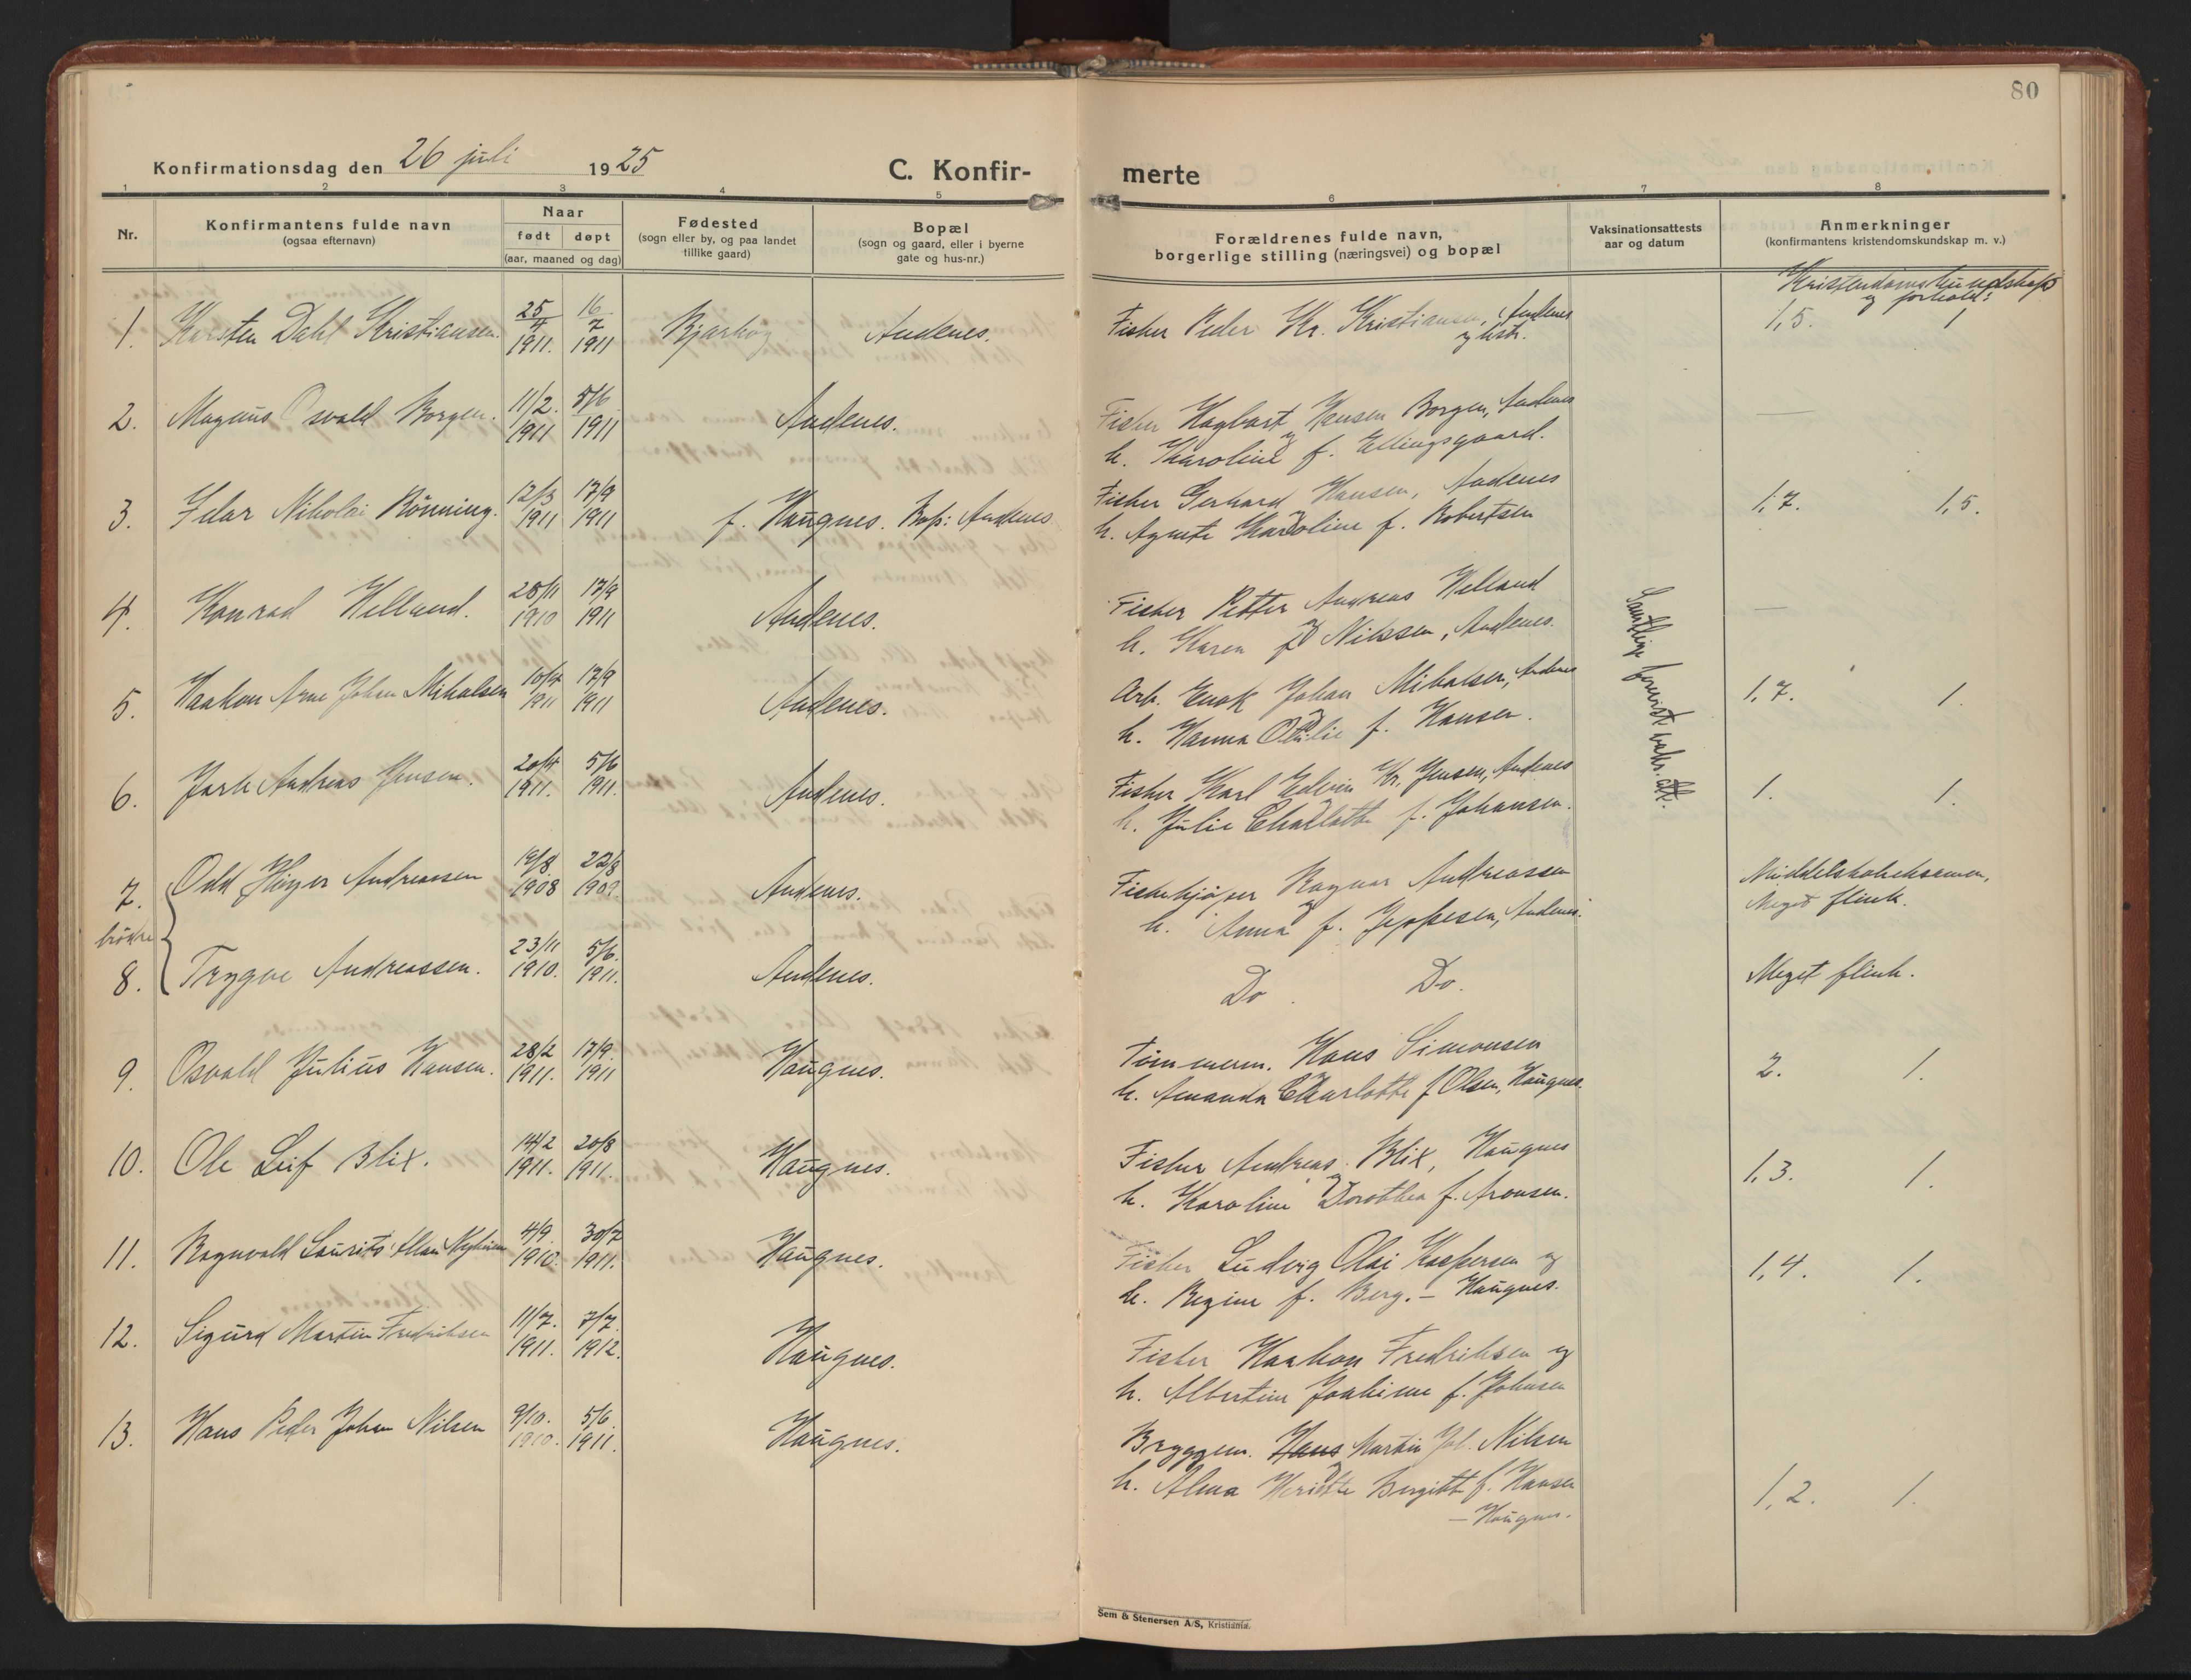 80
Konfirmationsdag den 26 juli 1925
C. Konfir- merte
1 2 3 4 5 6 7 8
Nr.
Konfirmantens fulde navn
(ogsaa efternavn)
Naar
født døpt
(aar, maaned og dag)
Fødested
(sogn eller by, og paa landet
tillike gaard)
Bopæl
(sogn og gaard, eller i byerne
gate og hus-nr.)
Forældrenes fulde navn,
borgerlige stilling (næringsvei) og bopæl
Vaksinationsattests
aar og datum
Anmerkninger
(konfirmantens kristendomskundskap m. v.)
Kristendomskundskap
og forhold:
1. Karsten Dahl Kristiansen. 25/4 1911. 16/7 1911 Bjarkøy Andenes. Fisker Peder Kr. Kristiansen, Andenes 1,5. 1
og hstr.
2. Magnus Osvald Borgen. 11/2. 1911 5/6 1911 Andenes. Fisker Hagbart Hansen Borgen, Andenes —
og h. Karoline f. Ellingsgaard.
3. Nikolai Rönning. 12/3 1911 17/9 1911 f. Haugnes. Bop: Andenes Fisker Gerhard Hansen, Andenes 1,7. 1,5.
og h. Agnete Karoline f. Robertsen
4. Konrad Helland. 28/11 1910 17/9 1911 Andenes. Fisker Petter Andreas Helland —
og h. Karen f. Nilssen, Andenes.
5. Haakon Arne Johan Mikalsen 10/4 1911 17/9 1911 Andenes. Arb. Enok Johan Mikalsen, Andenes 1,7. 1.
og h. Hanna Otilie f. Hansen.
6. Jarle Andreas Jensen. 20/4 1911. 5/6 1911. Andenes. Fisker Karl Edvin Kr. Jensen, Andenes 1. 1.
og h. Julie Charlotte f. Johansen.
Samtlige forevist vaks. att.
7. Odd Andreassen 19/8. 1908 22/8 1909. Andenes. Fiskekjøper Ragnar Andreassen Middelskoleeksamen,
og h. Anna f. Jeppesen, Andenes. Meget flink.
brödre
8. Trygve Andreassen. 23/11 1910. 5/6. 1911. Andenes. Do. Do. Meget flink.
9. Osvald Julius Hansen. 28/2 1911. 17/9. 1911 Haugnes. Tömmerm. Hans Simonsen 2. 1.
og h. Amanda Charlotte f. Olsen, Haugnes.
10. Ole Leif Blix. 14/2 1911. 20/8 1911. Haugnes. Fisker Andreas Blix, Haugnes 1,3. 1.
og h. Karoline Dorothea f. Aronsen.
11. Ragnvald Laurits Allan 4/9. 1910. 30/7 1911. Haugnes. Fisker Ludvig Olai Kaspersen og 1,4. 1.
h. Regine f. Berg. — Haugnes.
12. Sigurd Martin Fredriksen 11/7. 1911. 7/7. 1912. Haugnes. Fisker Haakon Fredriksen og
h. Albertine Joakime f. Johnsen
13. Hans Peder Johan Nilsen 9/10. 1910. 5/6. 1911. Haugnes. Bryggem. Hans Martin Joh. Nilsen
og h. Alma Bergitte f. Hansen 1,2. 1.
— Haugnes.
Sem & Stenersen A/S, Kristiania.